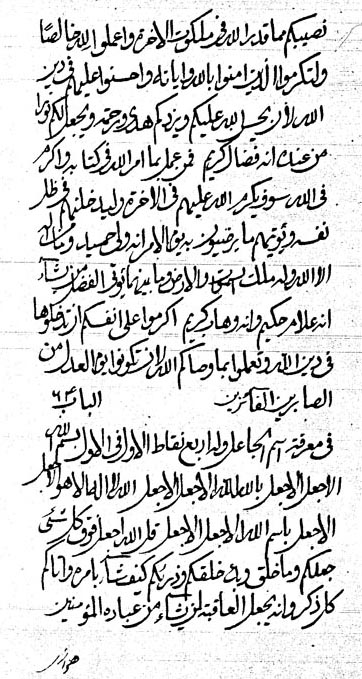 نصیبكم مما قدر الله فی ملكوت الاخرة واعملوا لله خالصًا
ولتكرموا الذین امنوا بالله وایاته واحسنوا علیهم فی دین
الله لأن یحسن الله علیكم ویزدكم هدی ورحمة ویجعل لكم نورا
من عنده انه فضال كریم فمن عمل بما امر الله فی كتابه واكرم
فی الله سوف یكرم الله علیهم فی الاخرة ولیدخلنهم فی ظل
نفسه ویؤتیهم ما یرضیون به یوم الامر انه ولی حمید وما من اله
الا الله وله ملك السموات والارض وما بینهما یؤتی الفضل من یشاء
انه علام حكیم وانه وهاب كریم اكرموا علی انفسكم ان تدخلوها
فی دین الله وتعملوا بما وصاكم الله ان تكونوا یوم العدل من
الصابرین الفائزین الباب ٦٣
فی معرفة اسم الجاعل وله اربع نقاط الاول فی الاول بسم الله
الاجعل الاجعل بالله الله الاجعل الاجعل الله لا اله الا هو الاجعل
الاجعل باسم الله الاجعل الاجعل قل الله اجعل فوق كل شئ
جعلكم وما خلق ویك خلقكم وذریكم كیف شاء بامره واتاكم
كل ذكر وانه یجعل العاقبة لمن یشاء من عباده المؤمنین
هو الذی